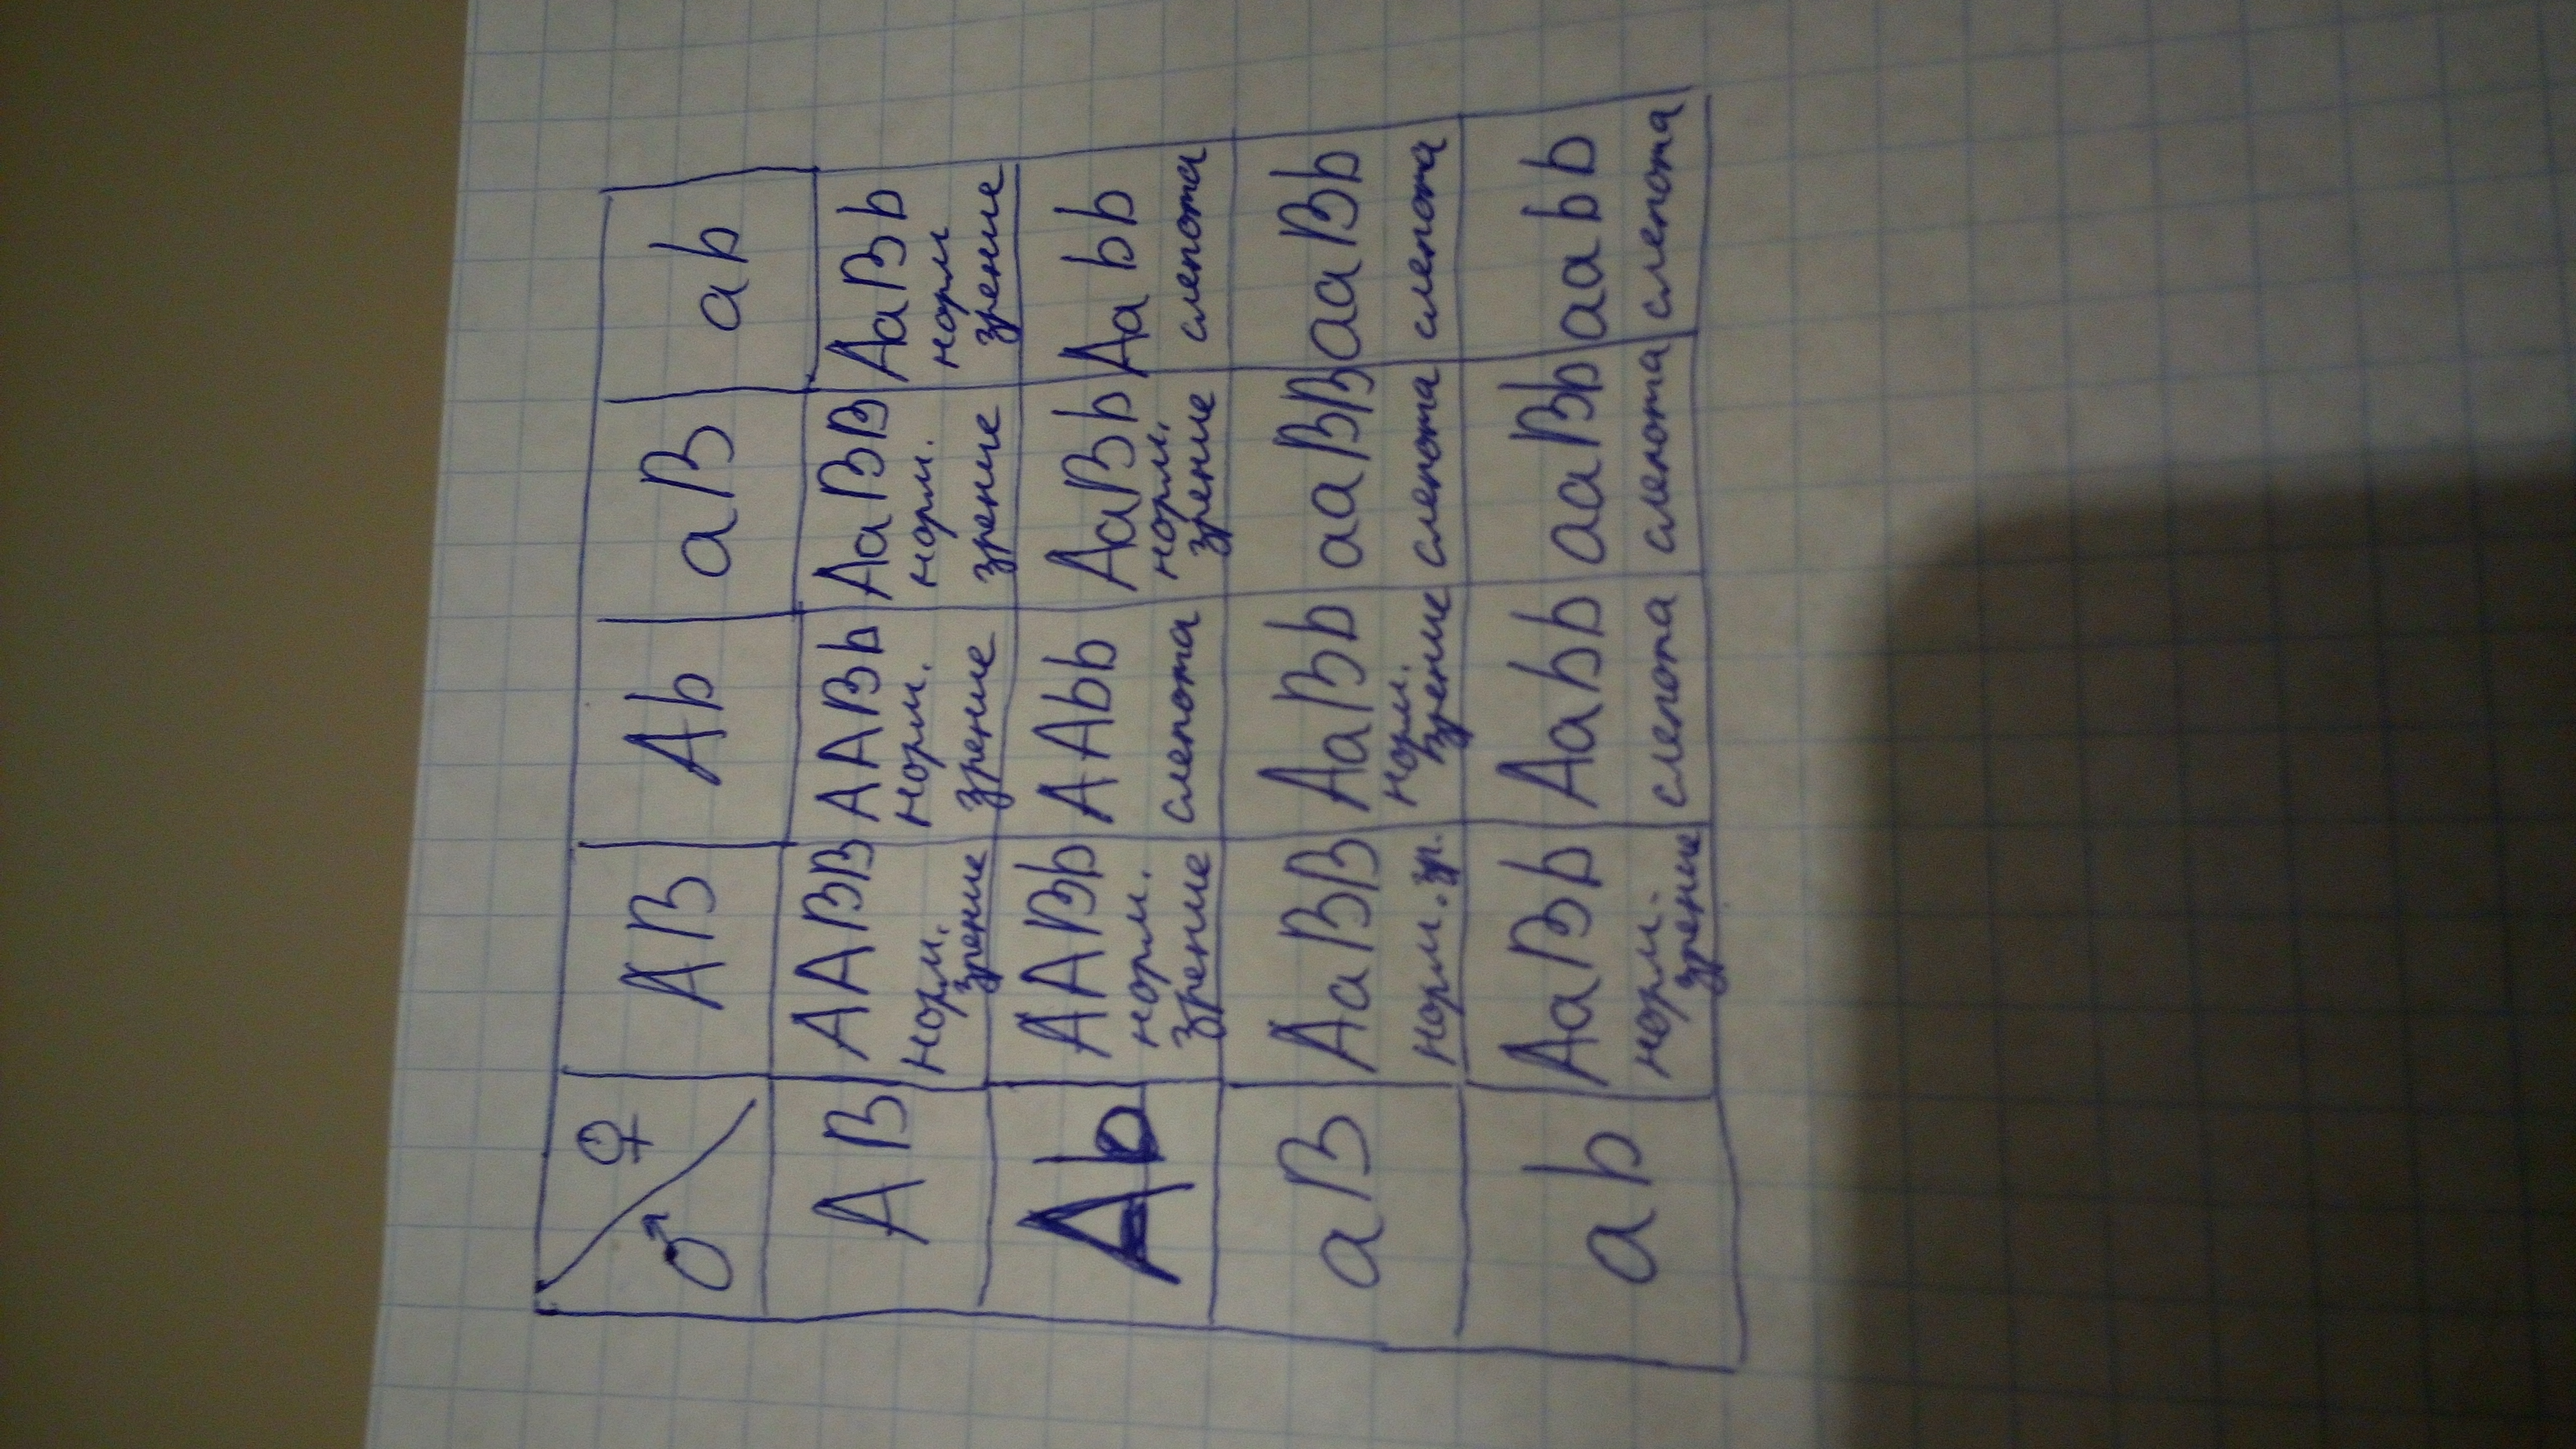 ♂ ♀ AB Ab aB ab
AB AABB AABb AaBB AaBb
норм. зрение норм. зрение норм. зрение норм зрение
Ab AABb AAbb AaBb Aabb
норм. зрение слепота норм. зрение слепота
aB AaBB AaBb aaBB aaBb
норм. зр. норм. зрение слепота слепота
ab AaBb Aabb aaBb aabb
норм. зрение слепота слепота слепота